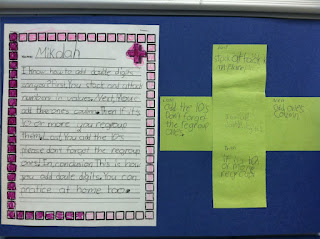 Name: Mikalah
I know how to add double digits
can you? First, You stack and attack
numbers in values. Next, You
add the ones column. Then if its
10 or more you regroup
them. Last, You add the 10s
please don't forget the regroup
ones. In conclusion This is how
you add double digits. You can
pratice at home too.
stack attack #s
in place
add the 10s
Don't forget
the regroup
ones
add ones
column
if 10
or more
regroup